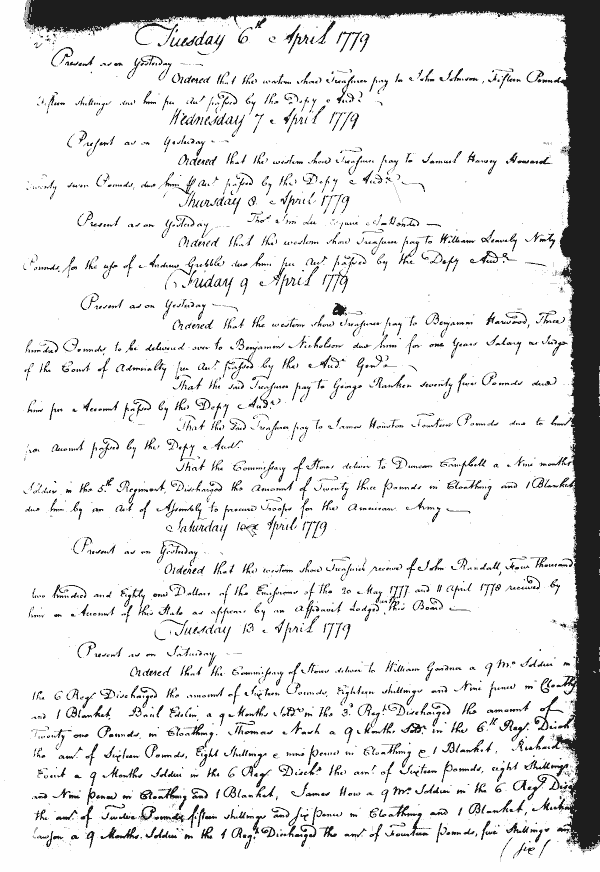 Tuesday 6th April 1779
Present as on Yesterday
Ordered that the western shore Treasurer pay to John Johnson, Fifteen Pounds
fifteen shillings due him per Acct passed by the Depy Audr
Wednesday 7 April 1779
Present as on Yesterday
Ordered that the western shore Treasurer pay to Samuel Harvey Howard
twenty seven Pounds, due him Acct passed by the Depy Audr
Thursday 8 April 1779
Present as on Yesterday Thos Sim Lee
Ordered that the western shore Treasurer pay to William Leavely Ninty
Pounds, for the use of Andrew Grebble due him per Acct passed by the Depy Audr
Friday 9 April 1779
Present as on Yesterday
Ordered that the western shore Treasurer pay to Benjamin Harwood, Three
hundred Pounds, to be delivered over to Benjamin Nicholson due him for one Years Salary as Judge
of the Court of Admiralty per Acct passed by the Audr Genl
That the said Treasurer pay to George Ranken seventy five Pounds due
him per Account passed by the Depy Audr
That the said Treasurer pay to James Houston Fourteen Pounds due to him
per Account passed by the Depy Audr
That the Commissary of Stores deliver to Duncan Campbell a Nine months
Soldier in the 5th Regiment, Discharged the Amount of Twenty three Pounds in Cloathing and 1 Blanket
due him by an Act of Assembly to procure Troops for the American Army
Saturday April 1779
Present as on Yesterday
Ordered that the western shore Treasurer receive of John Randall, Four thousand
two hundred and Eighty one Dollars of the Emissions of the 20 May 1777 and 11 April 1778 received by
him on Account of this State as appears by an Affidavit Lodged with this Board
Tuesday 13 April 1779
Present as on Saturday
Ordered that the Commissary of Stores deliver to William Gardner a 9 Mo Soldier in
the 6 Regt Discharged the amount of Sixteen Pounds, Eighteen shillings and Nine pence in Cloathg
and 1 Blanket, Basil Edelin, a 9 Months Soldr in the 3d Regt Discharged the amount of
Twenty one Pounds, in Cloathing. Thomas Nash a 9 Months Soldr in the 6th Regt Disch
the amt of Sixteen Pounds, Eight Shillings & nine Pence in Cloathing & 1 Blanket, Richard
a 9 Months Soldier in the 6 Regt Dischd the amt of Sixteen Pounds, eight Shillings
and Nine Pence in Cloathing and 1 Blanket, James How a 9 Mo Soldier in the 6 Regt Disc
the amt of Twelve Pounds fifteen shillings and six Pence in Cloathing and 1 Blanket,
Lawson a 9 Months Soldier in the 1 Regt Discharged the amt of Fourteen Pounds, five Shillings and
(six)